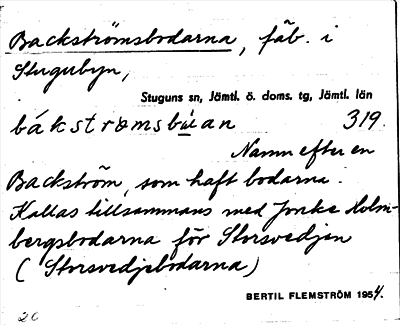 Backströmsbodarna, fäb. i
Stugubyn,
Stuguns sn, Jämtl. ö. doms. tg, Jämtl. län
båkstrømsbu̇an 319.
Namn efter en
Backström, som haft bodarna.
Kallas tillsammans med Jonke Holm-
bergsbodarna för Storsvedjen
(Storsvedjebodarna)
BERTIL FLEMSTRÖM 1954.
20